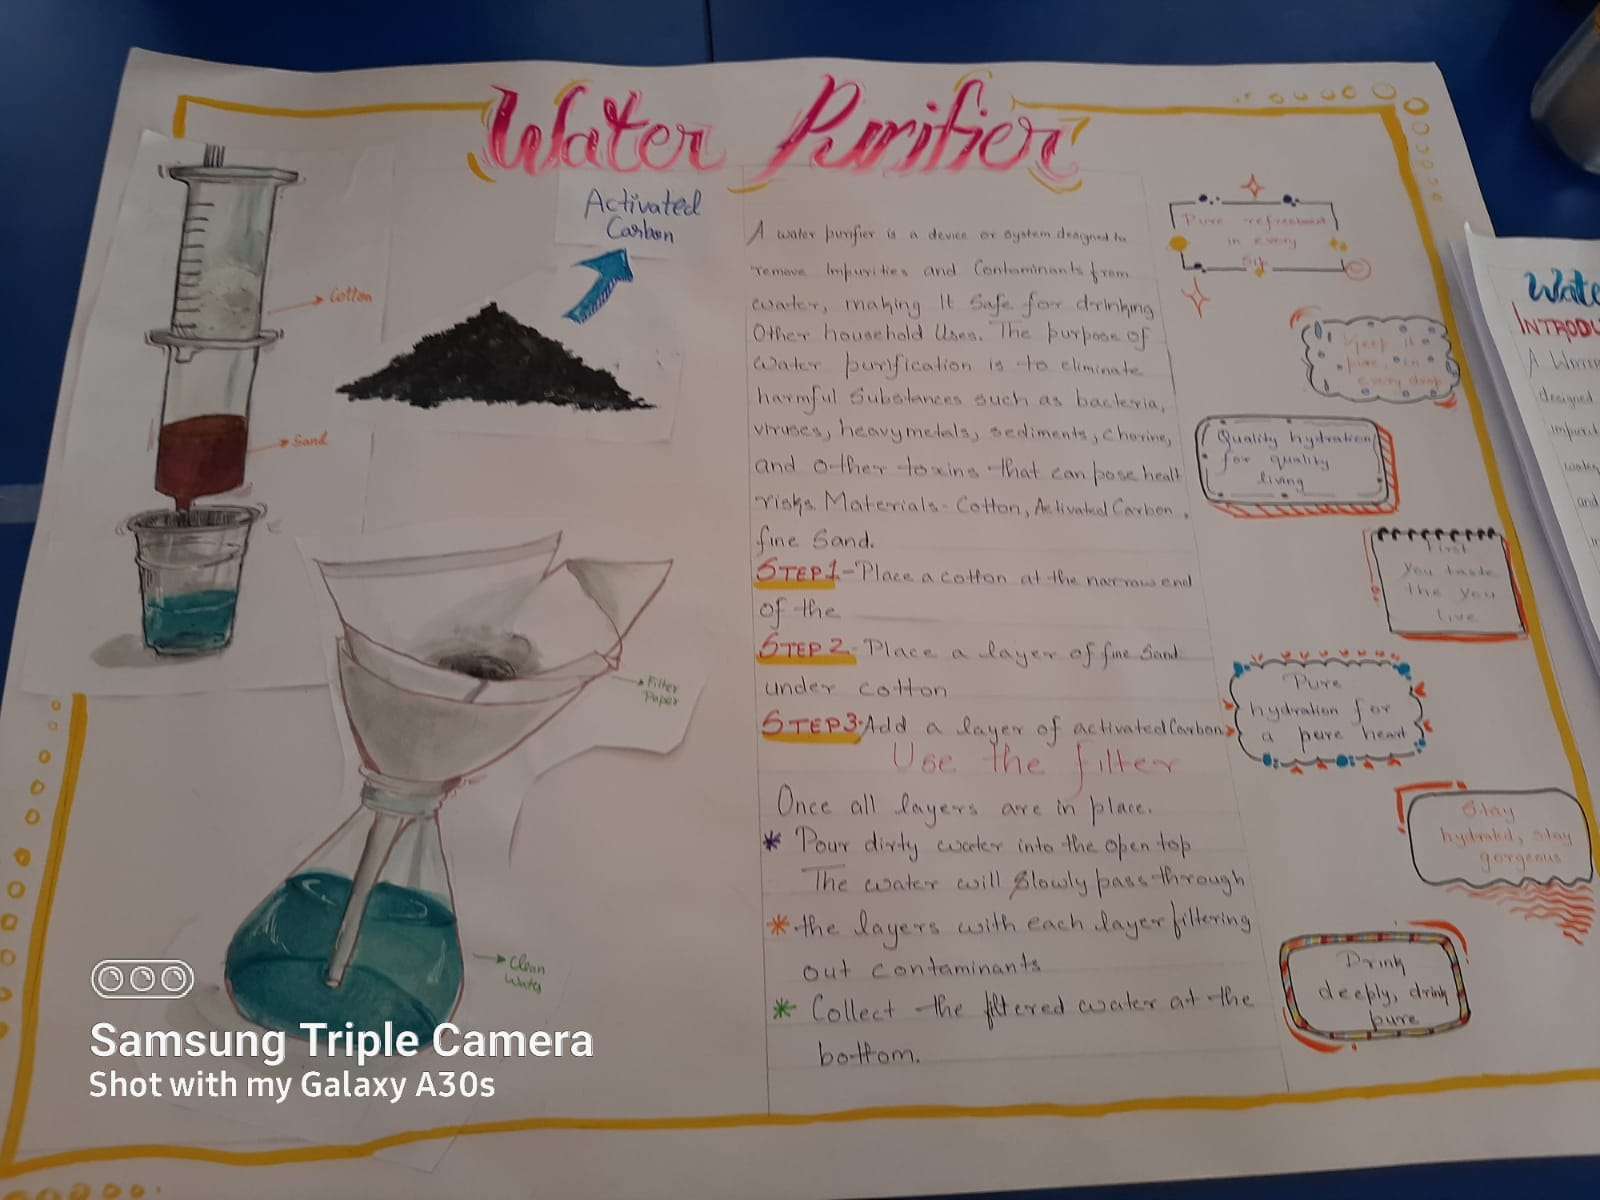 Water Purifier
Activated
Carbon
Cotton
Sand
Filter
Paper
Clean
Water
A water purifier is a device or system designed to
remove Impurities and Contaminants from
water, making It Safe for drinking
Other household Uses. The purpose of
Water purification is to eliminate
harmful Substances such as bacteria,
viruses, heavy metals, sediments, chorine,
and other toxins that can pose healt
risks. Materials- Cotton, Activated Carbon,
fine Sand.
STEP1-Place a cotton at the narrow end
of the
STEP 2-Place a layer of fine Sand
under cotton
STEP3-Add a layer of activated Carbon
Use the filter
Once all layers are in place.
* Pour dirty water into the open top
The water will slowly pass through
* the layers with each layer filtering
out contaminants
* Collect the filtered water at the
bottom.
Pure refreshment
in every
Sip
Keep it
pure, in
every drop
Quality hydration
for quality
living
First
You taste
the you
live
Pure
hydration for
a pure heart
Stay
hydrated, stay
gorgeous
Drink
deeply, drink
pure
Wate
INTRODU
A Water
designed
impuri
water
and
Samsung Triple Camera
Shot with my Galaxy A30s